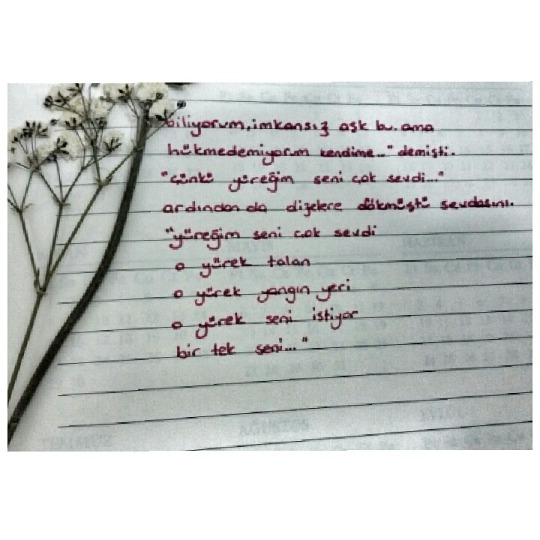 biliyorum, imkansız aşk bu. ama
hükmedemiyorum kendime..." demişti.
"çünkü yüreğim seni çok sevdi..."
ardından da dizelere dökmüştü sevdasını.
"yüreğim seni çok sevdi
o yürek talan
o yürek yangın yeri
o yürek seni istiyor
bir tek seni..."
HAZİRAN
TEMMUZ
AĞUSTOS
EYLÜL